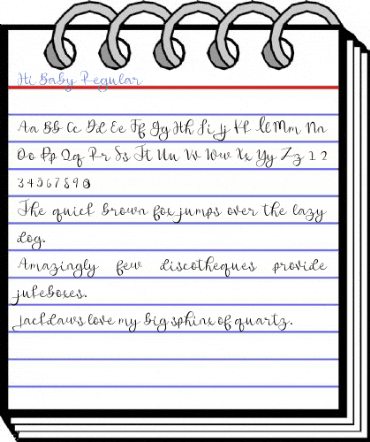 Hi Baby Regular
Aa Bb Cc Dd Ee Ff Gg Hh Ii Jj Kk Ll Mm Nn
Oo Pp Qq Rr Ss Tt Uu Vv Ww Xx Yy Zz 1 2
3 4 5 6 7 8 9 0
The quick brown fox jumps over the lazy
dog.
Amazingly few discotheques provide
jukeboxes.
Jackdaws love my big sphinx of quartz.